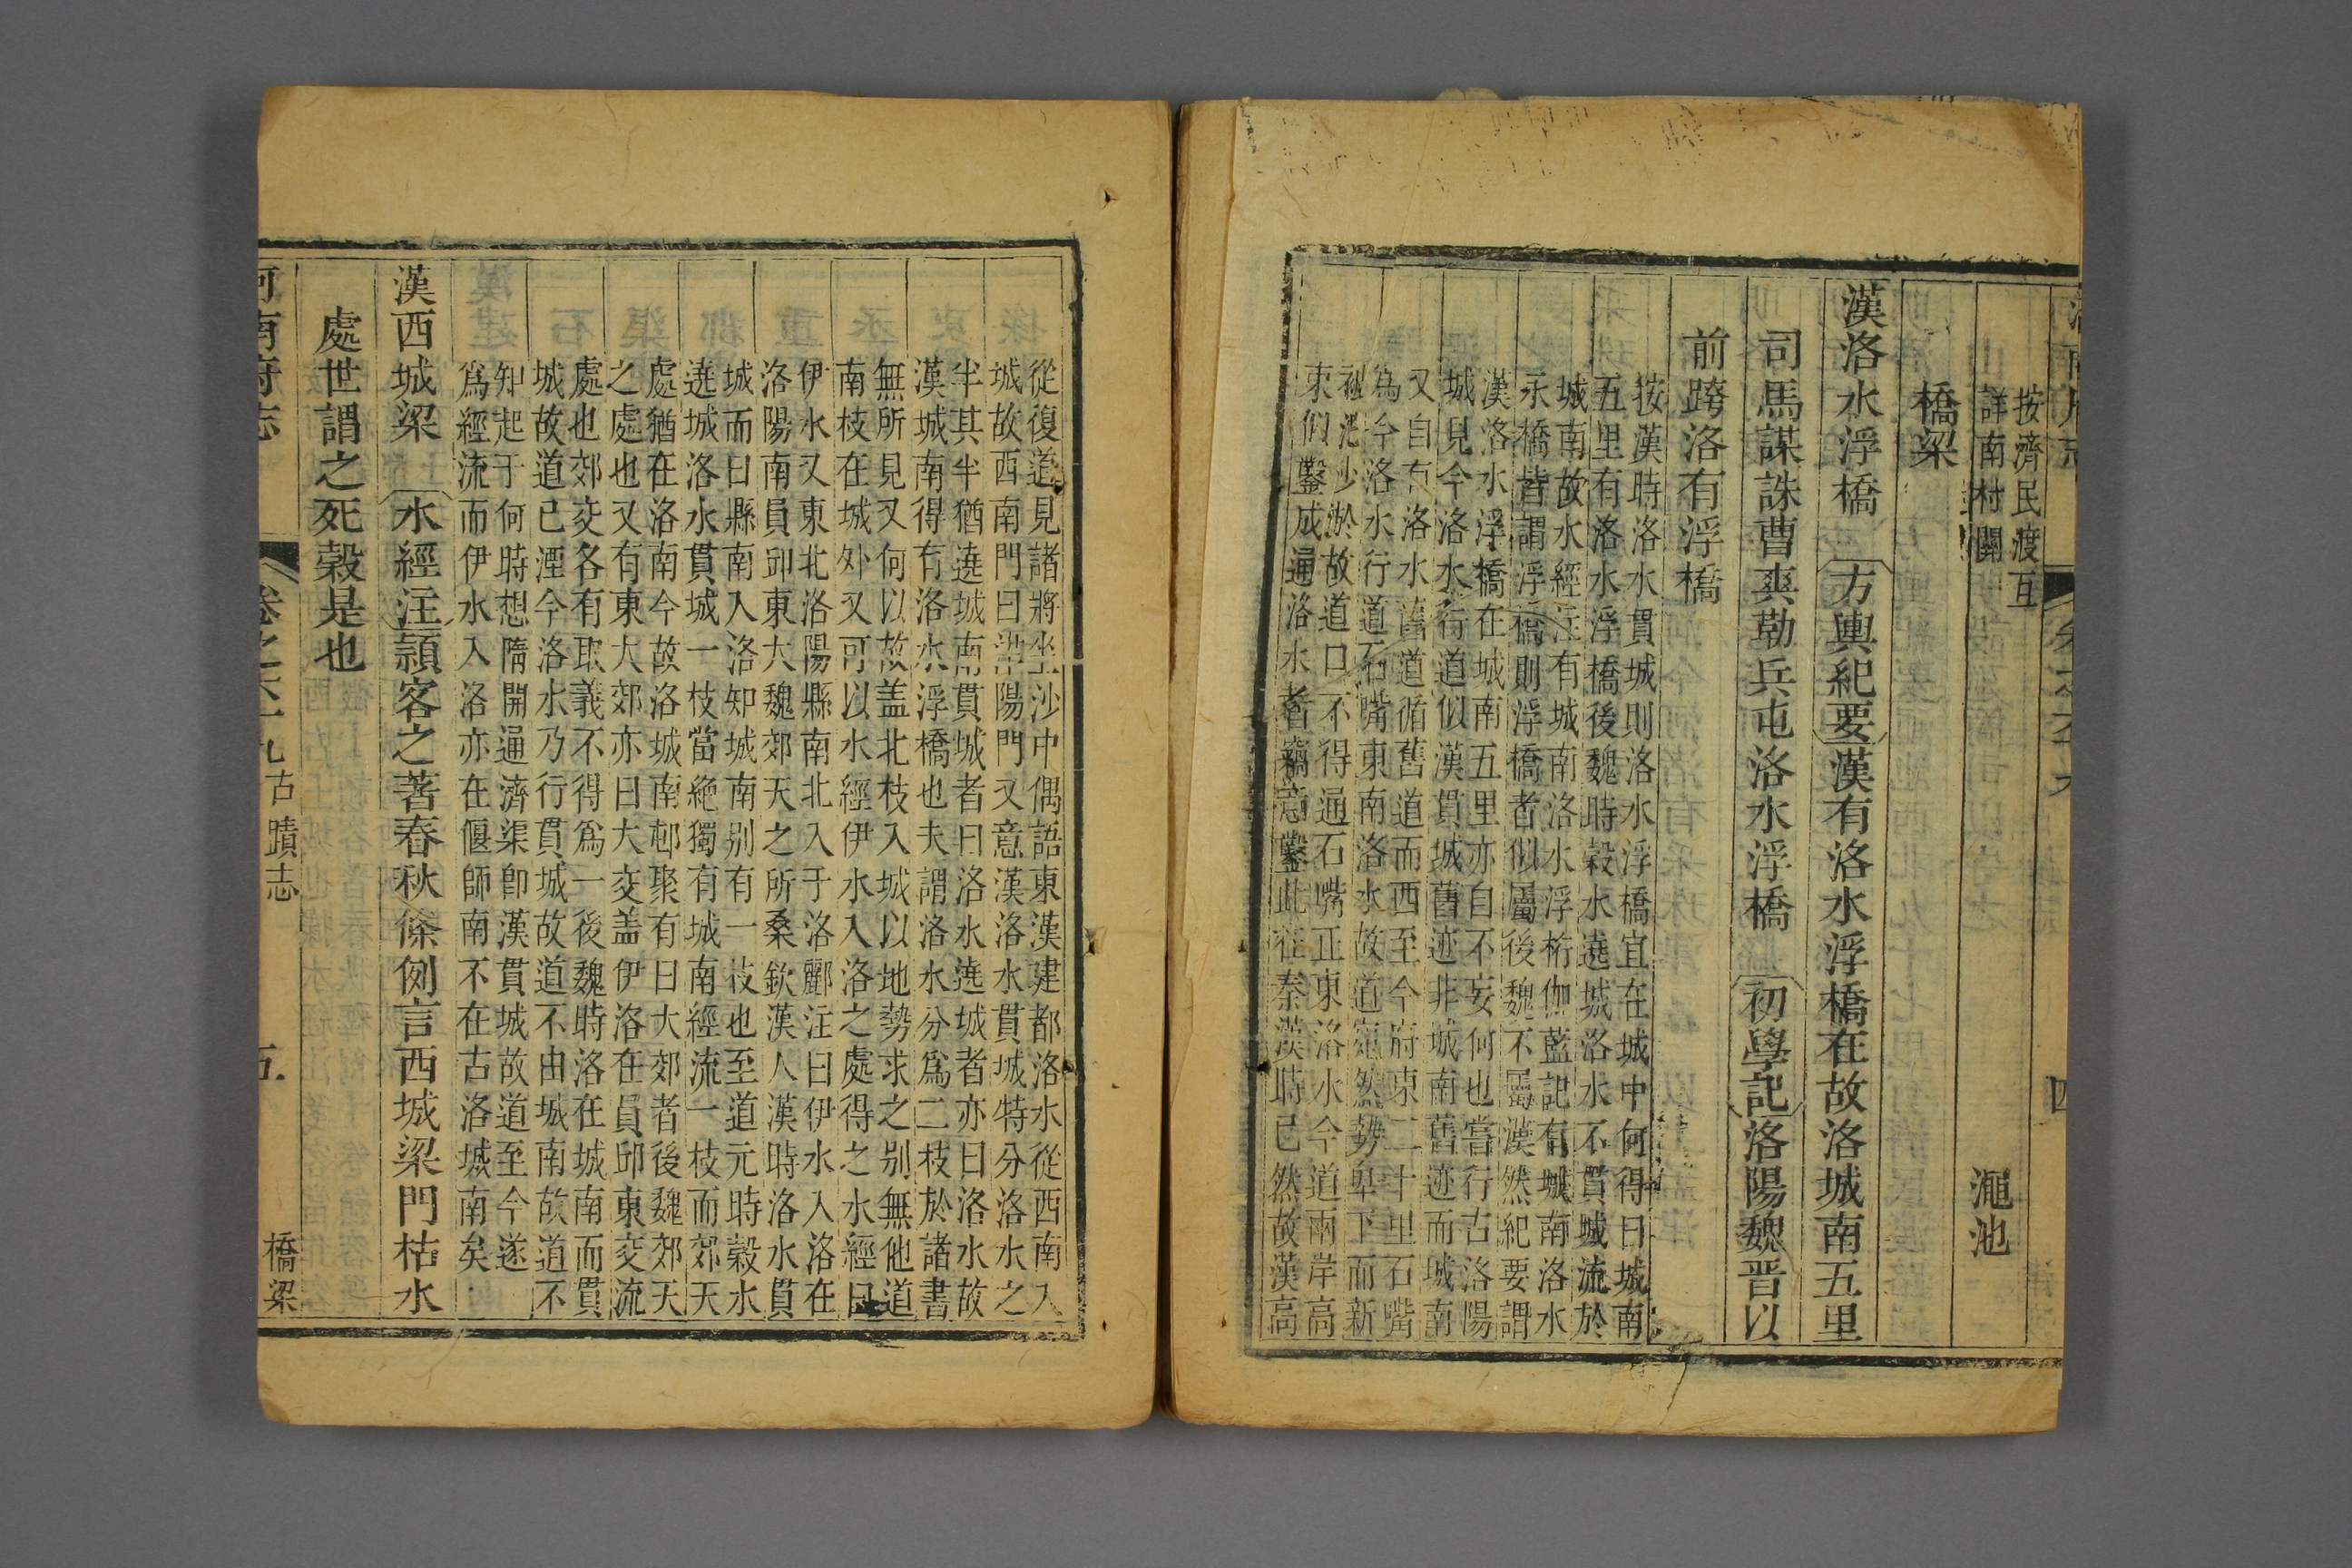 按濟民渡互
詳南村關
澠池
橋梁
漢洛水浮橋方輿紀要漢有洛水浮橋在故洛城南五里
司馬謀誅曹爽勒兵屯洛水浮橋初學記洛陽魏晋以
前跨洛有浮橋
按漢時洛水貫城則洛水浮橋宜在城中何得曰城南
五里有洛水浮橋後魏時穀水遶城洛水不貫城流於
城南故水經注有城南洛水浮桁伽藍記有城南洛水
永橋皆謂浮橋則浮橋者似屬後魏不屬漢然紀要謂
漢洛水浮橋在城南五里亦自不妄何也當行古洛陽
城見今洛水行道似漢貫城舊迹非城南舊迹而城南
又自有洛水舊道循舊道而西至今府東二十里石嘴
為今洛水行道石嘴東南洛水故道宛然勢卑下而新
淤故道口不得通石嘴正東洛水今道兩岸高
東似鑿成通洛水者竊意鑿此在秦漢時已然故漢高
從復道見諸將坐沙中偶語東漢建都洛水從西南入
城故西南門曰津陽門又意漢洛水貫城特分洛水之
半其半猶遶城南貫城者曰洛水遶城者亦曰洛水故
漢城南得有洛水浮橋也夫謂洛水分爲二枝於諸書
無所見又何以故盖北枝入城以地勢求之别無他道
南枝在城外又可以水經伊水入洛之處得之水經曰
伊水又東北洛陽縣南北入于洛酈注曰伊水入洛在
洛陽南員邱東大魏郊天之所桑欽漢人漢時洛水貫
城而曰縣南入洛知城南别有一枝也至道元時穀水
遶城洛水貫城一枝當絶獨有城南經流一枝而郊天
處猶在洛南今故洛城南南郵聚有曰大郊者後魏郊天
之處也又有東大郊亦曰大交盖伊洛在員邱東交流
處也郊交各有取義不得爲一後魏時洛在城南而貫
城故道已湮今洛水乃行貫城故道不由城南故道不
知起于何時想隋開通濟渠卽漢貫城故道至今遂
爲經流而伊水入洛亦在偃師南不在古洛城南矣
漢西城梁水經注頴客之著春秋條例言西城梁門枯水
處世謂之死穀是也
河南府志
卷之六十九古蹟志
橋梁
五